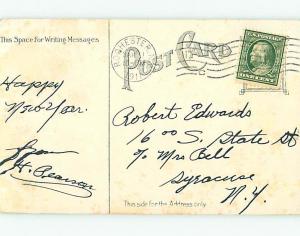 This Space for Writing Messages
POST CARD
ROCHESTER
U.S. POSTAGE
ONE CENT
Happy
New Year.
from
H. Pearson
Robert Edwards
600 S. State St
c/o Mrs Bell
Syracuse
N.Y.
This side for the Address only